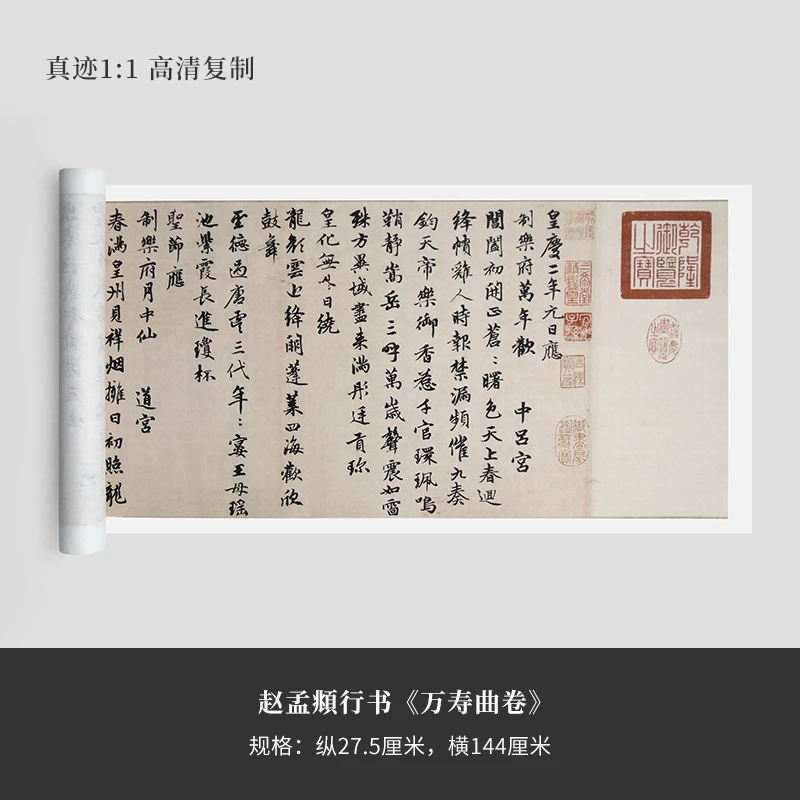 真迹1:1 高清复制
乾隆御覽之寶
皇慶二年元日應
制樂府萬年歡 中呂宮
閶闔初開正蒼〻曙色天上春迴
絳幘雞人時報禁漏頻催九奏
鈞天帝樂御香惹千官環珮鳴
鞘靜嵩岳三呼萬歲聲震如雷
殊方異域盡来滿彤廷貢珎
皇化無外日繞
龍顏雲上絳闕蓬萊四海歡欣
鼓舞
聖德過唐虞三代年〻宴王母瑤
池紫霞長進瓊杯
聖節應
制樂府月中仙 道宮
春滿皇州見祥烟擁日初照龍
赵孟頫行书《万寿曲卷》
规格：纵27.5厘米，横144厘米